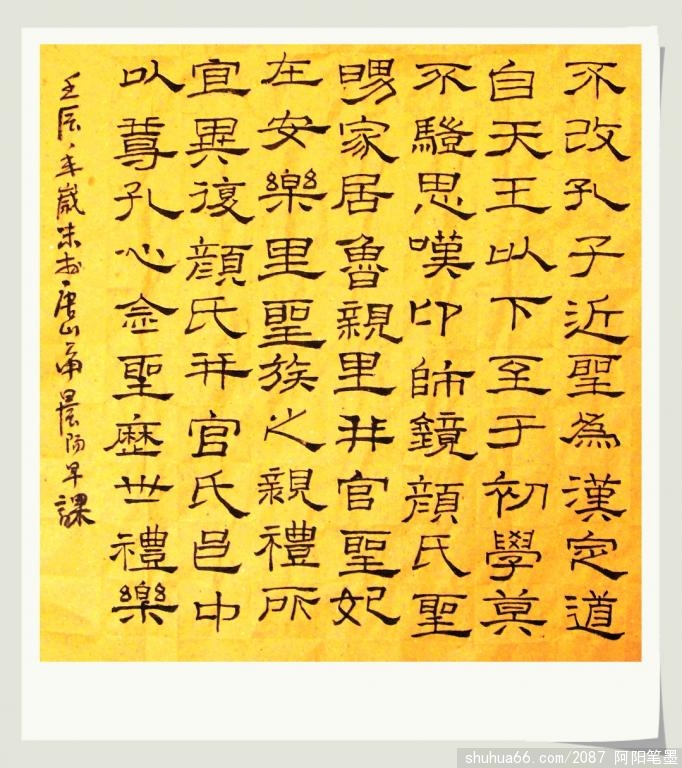 不改孔子近聖為漢定道
自天王以下至于初學莫
不驥思嘆卬師鏡顏氏聖
舅家居魯親里并官聖妃
在安樂里聖族之親禮所
宜異復顏氏并官氏邑中
以尊孔心念聖歷世禮樂
壬辰年歲末於唐山
晨陽早課
shuhua66.com/2087 阿阳笔墨